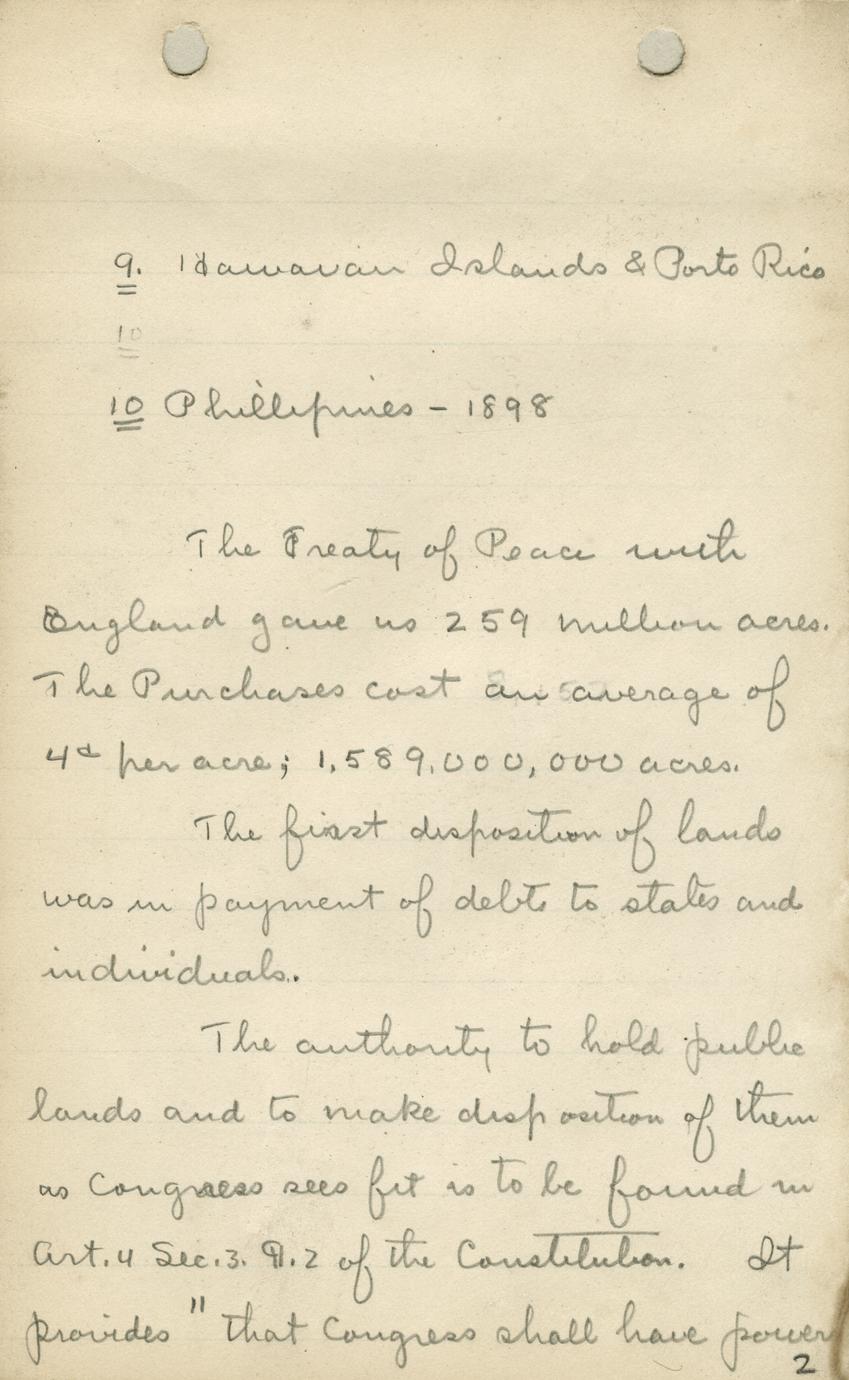 9. Hawaiian Islands & Porto Rico
10
10 Phillipines - 1898
The Treaty of Peace with
England gave us 259 million acres.
The Purchases cost an average of
4¢ per acre; 1,589,000,000 acres.
The first disposition of lands
was in payment of debts to states and
individuals.
The authority to hold public
lands and to make disposition of them
as Congress sees fit is to be found in
Art. 4 Sec. 3. P. 2 of the Constitution. It
provides "that Congress shall have power
2